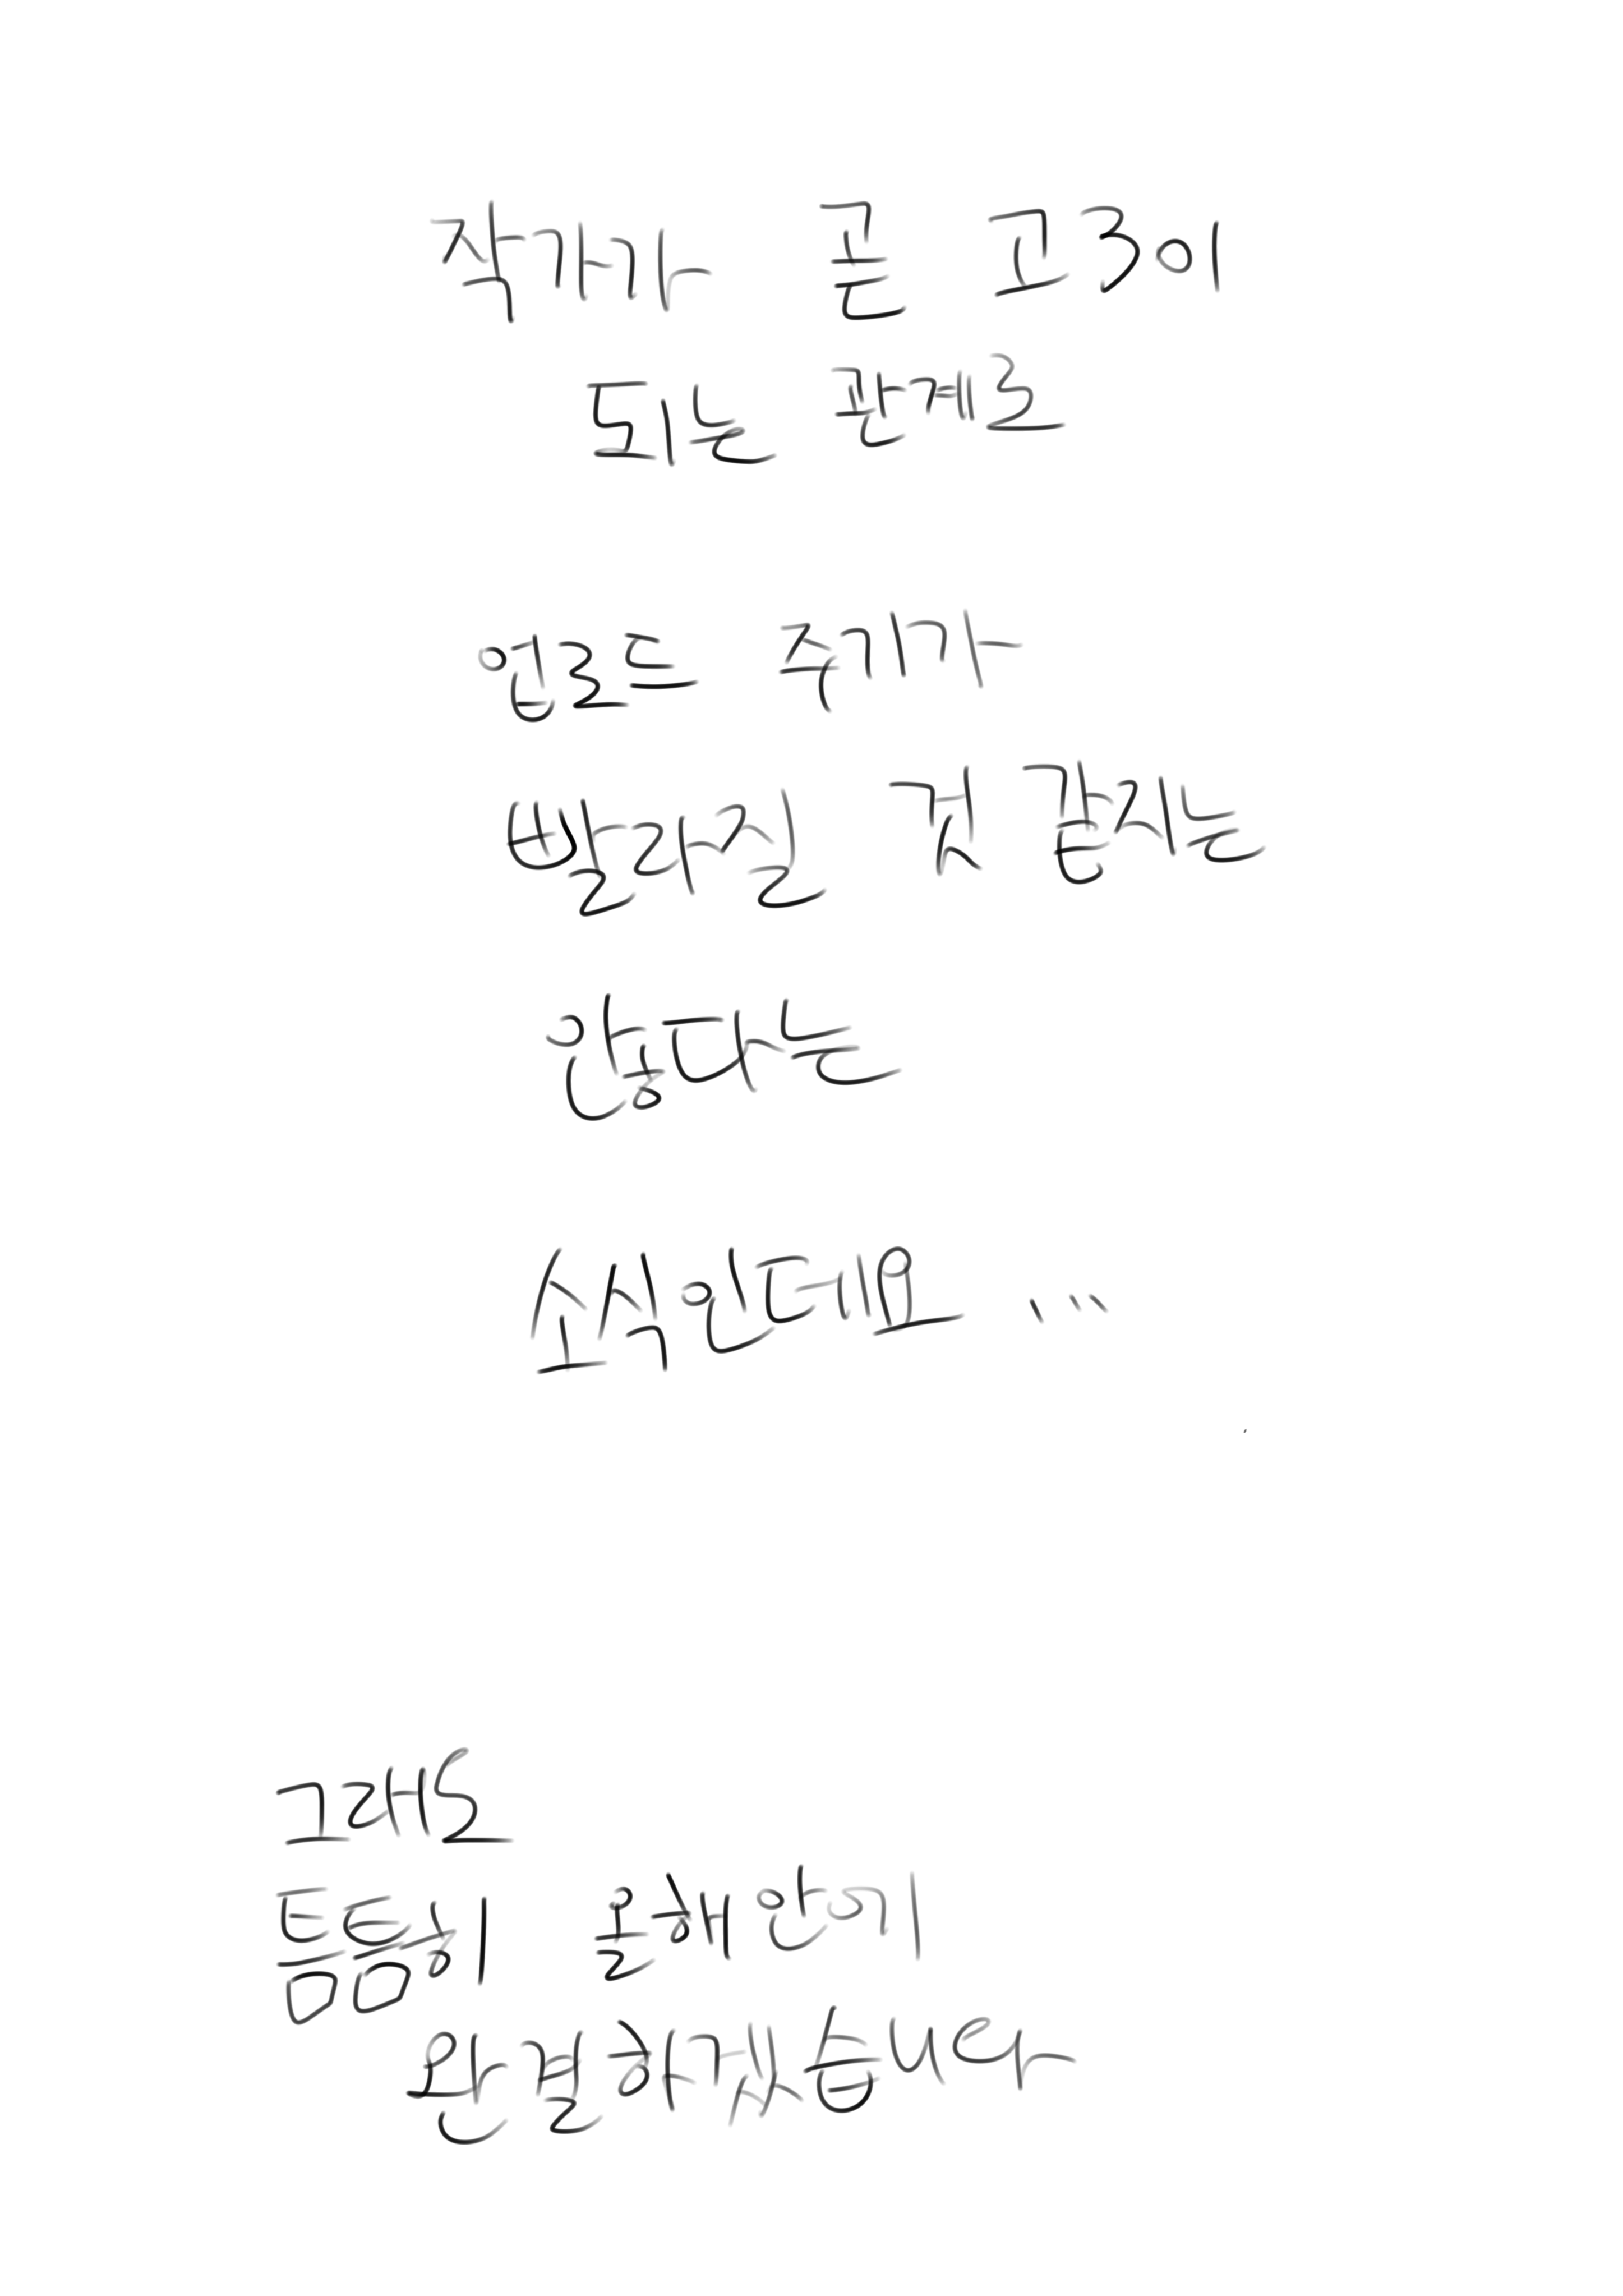 작가가 곧 고3이
되는 관계로
업로드 주기가
빨라질 것 같지는
않다는
소식인데요...
그래도
틈틈히 올해 안에
완결하겠습니다